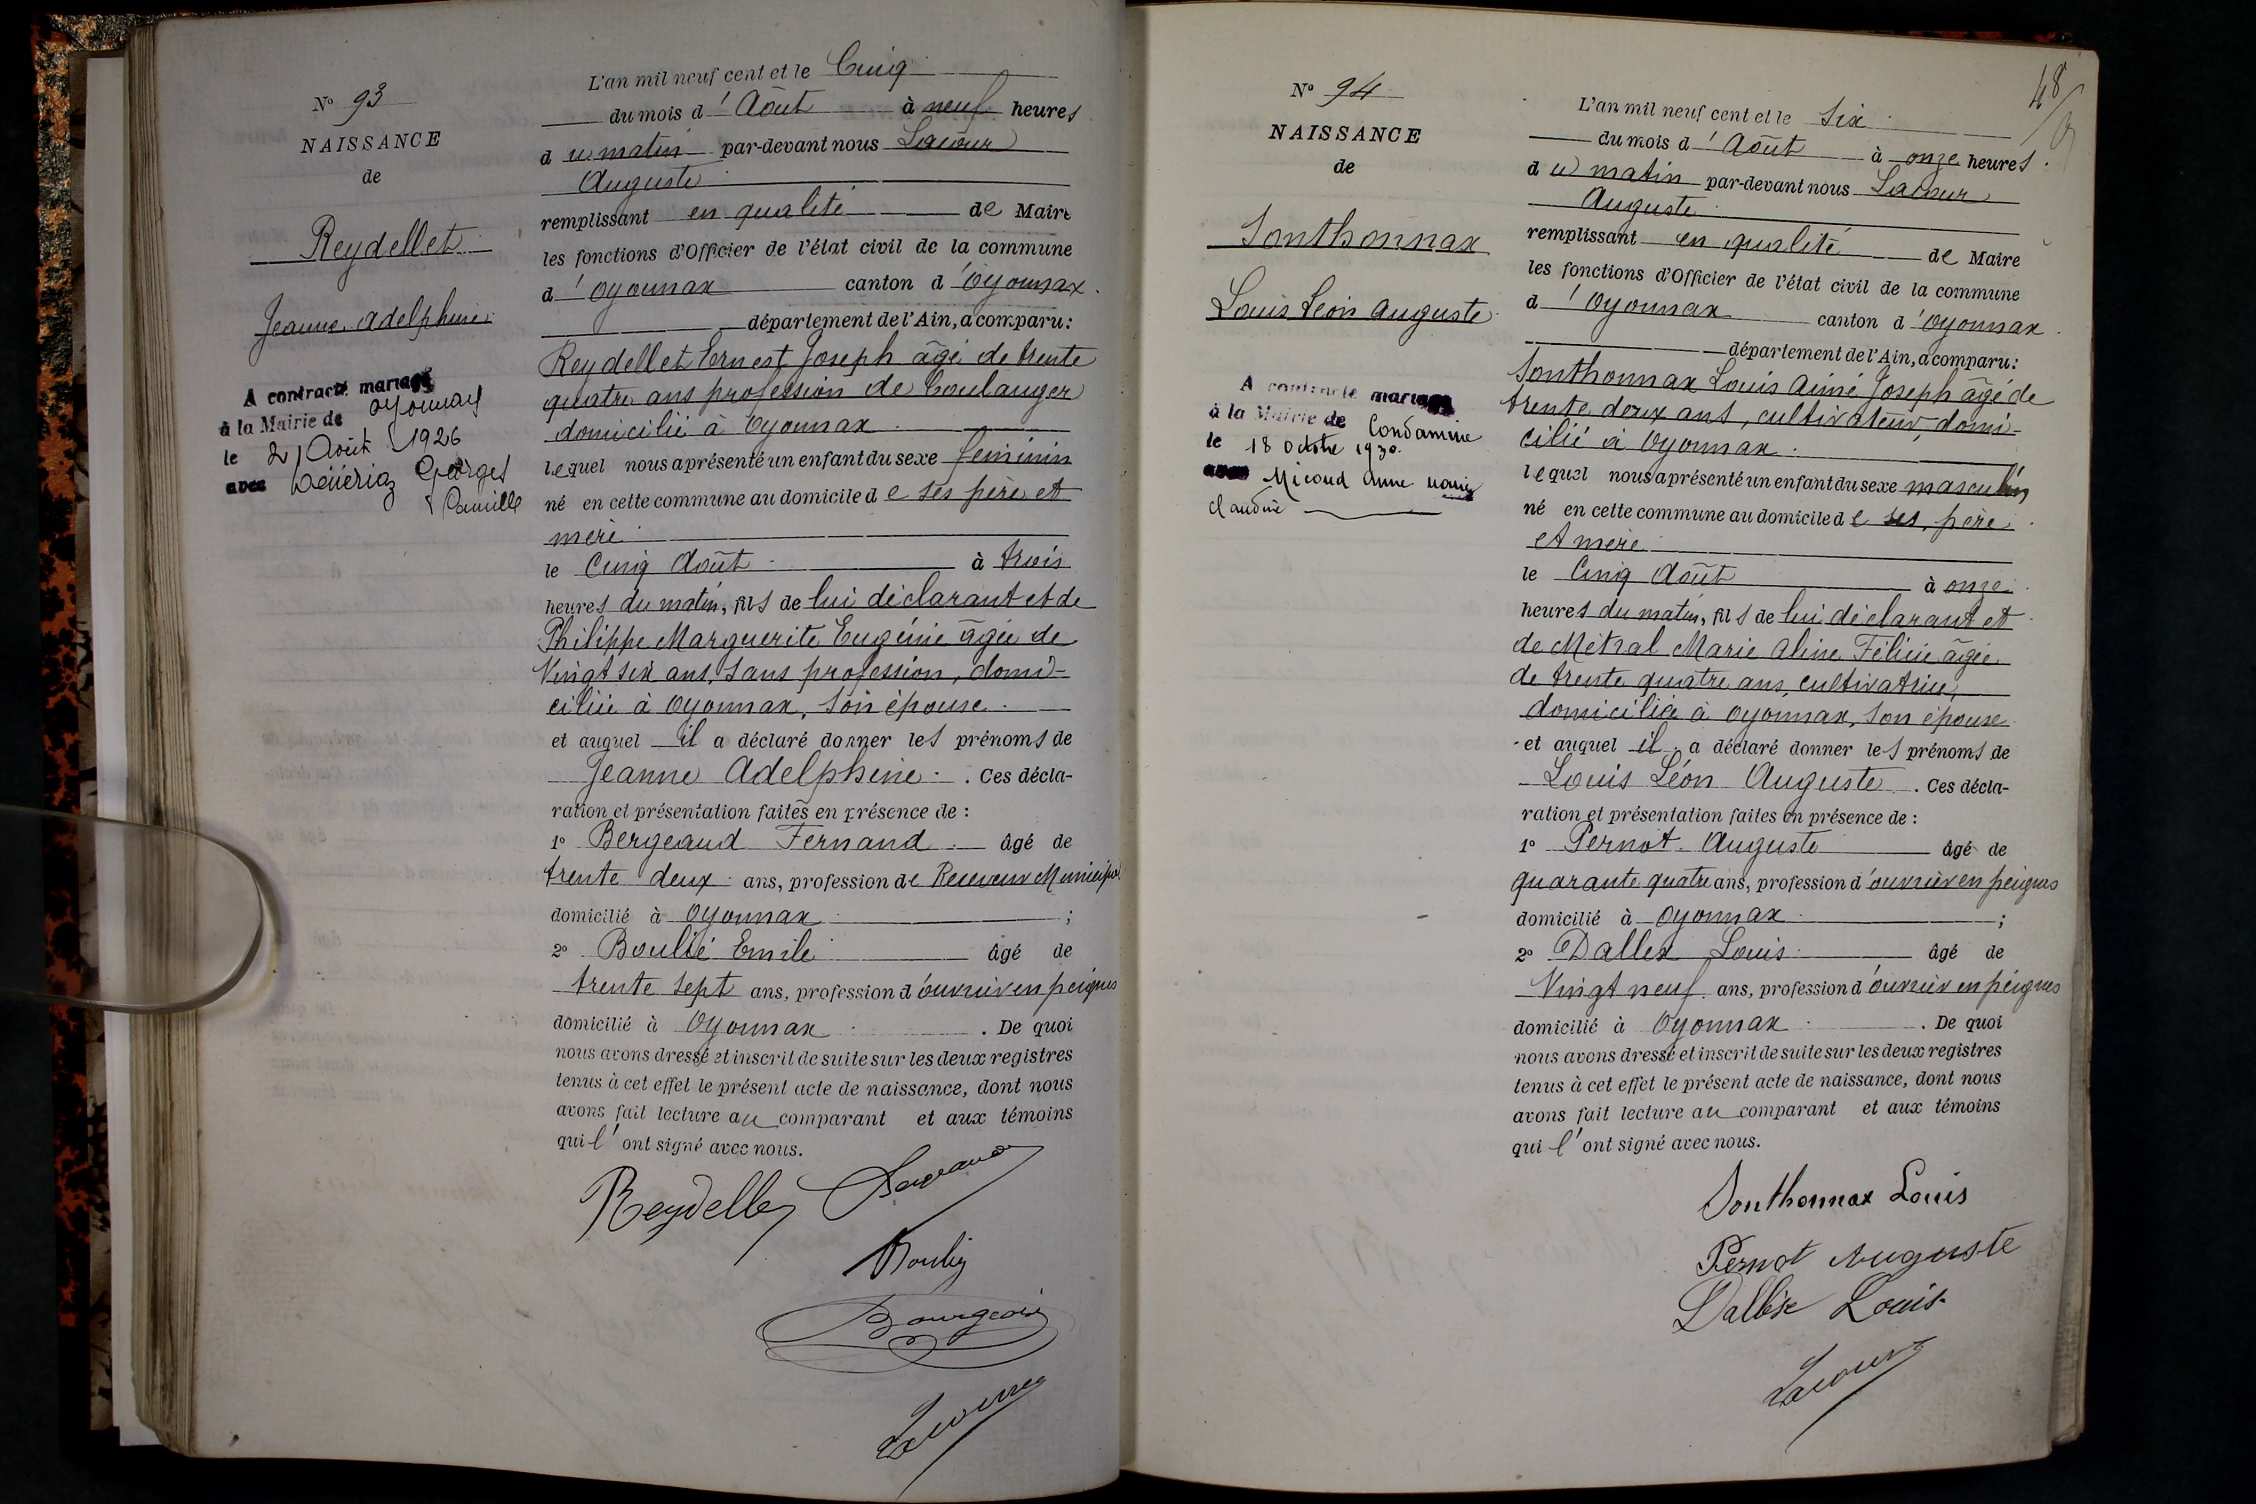 Nº 93
NAISSANCE
de
Reydellet
Jeanne Adelphine
A contracté mariage
à la Mairie de Oyonnax
le 21 Août 1926
avec Georges
Camille
L'an mil neuf cent et le Cinq
du mois d'Août à neuf heures
du matin par-devant nous Lacour
Auguste
remplissant en qualité de Maire
les fonctions d'Officier de l'état civil de la commune
d'Oyonnax canton d'Oyonnax.
département de l'Ain, a comparu :
Reydellet Ernest Joseph âgé de trente
quatre ans profession de boulanger
domicilié à Oyonnax
lequel nous a présenté un enfant du sexe féminin
né en cette commune au domicile de ses père et
mère
le Cinq Août à trois
heures du matin, fils de lui déclarant et de
Philippe Marguerite Eugénie âgée de
Vingt six ans, sans profession, domi-
ciliée à Oyonnax, son épouse.
et auquel il a déclaré donner les prénoms de
Jeanne Adelphine. Ces décla-
ration et présentation faites en présence de :
1º Bergeaud Fernand âgé de
trente deux ans, profession de Receveur Municipal
domicilié à Oyonnax ;
2º Boulié Emile âgé de
trente sept ans, profession d'ouvrier en peignes
domicilié à Oyonnax. De quoi
nous avons dressé et inscrit de suite sur les deux registres
tenus à cet effet le présent acte de naissance, dont nous
avons fait lecture au comparant et aux témoins
qui l'ont signé avec nous.
Reydellet
Boulié
Bourgeois
Lacour
48
Nº 94
NAISSANCE
de
Sonthonnax
Louis Léon Auguste
A contracté mariage
à la Mairie de Condamine
le 18 Octobre 1930.
avec Micoud Anne Marie
Claudine
L'an mil neuf cent et le Six
du mois d'Août à onze heures.
du matin par-devant nous Lacour
Auguste
remplissant en qualité de Maire
les fonctions d'Officier de l'état civil de la commune
d'Oyonnax canton d'Oyonnax.
département de l'Ain, a comparu :
Sonthonnax Louis Aimé Joseph âgé de
trente deux ans, cultivateur, domi-
cilié à Oyonnax.
lequel nous a présenté un enfant du sexe masculin
né en cette commune au domicile de ses père
et mère
le Cinq Août à onze
heures du matin, fils de lui déclarant et
de Métral Marie Aline Félicie âgée
de trente quatre ans, cultivatrice,
domiciliée à Oyonnax, son épouse
et auquel il a déclaré donner les prénoms de
Louis Léon Auguste. Ces décla-
ration et présentation faites en présence de :
1º Pernot Auguste âgé de
quarante quatre ans, profession d'ouvrier en peignes
domicilié à Oyonnax ;
2º Dallex Louis âgé de
Vingt neuf ans, profession d'ouvrier en peignes
domicilié à Oyonnax. De quoi
nous avons dressé et inscrit de suite sur les deux registres
tenus à cet effet le présent acte de naissance, dont nous
avons fait lecture au comparant et aux témoins
qui l'ont signé avec nous.
Sonthonnax Louis
Pernot Auguste
Dallex Louis
Lacour